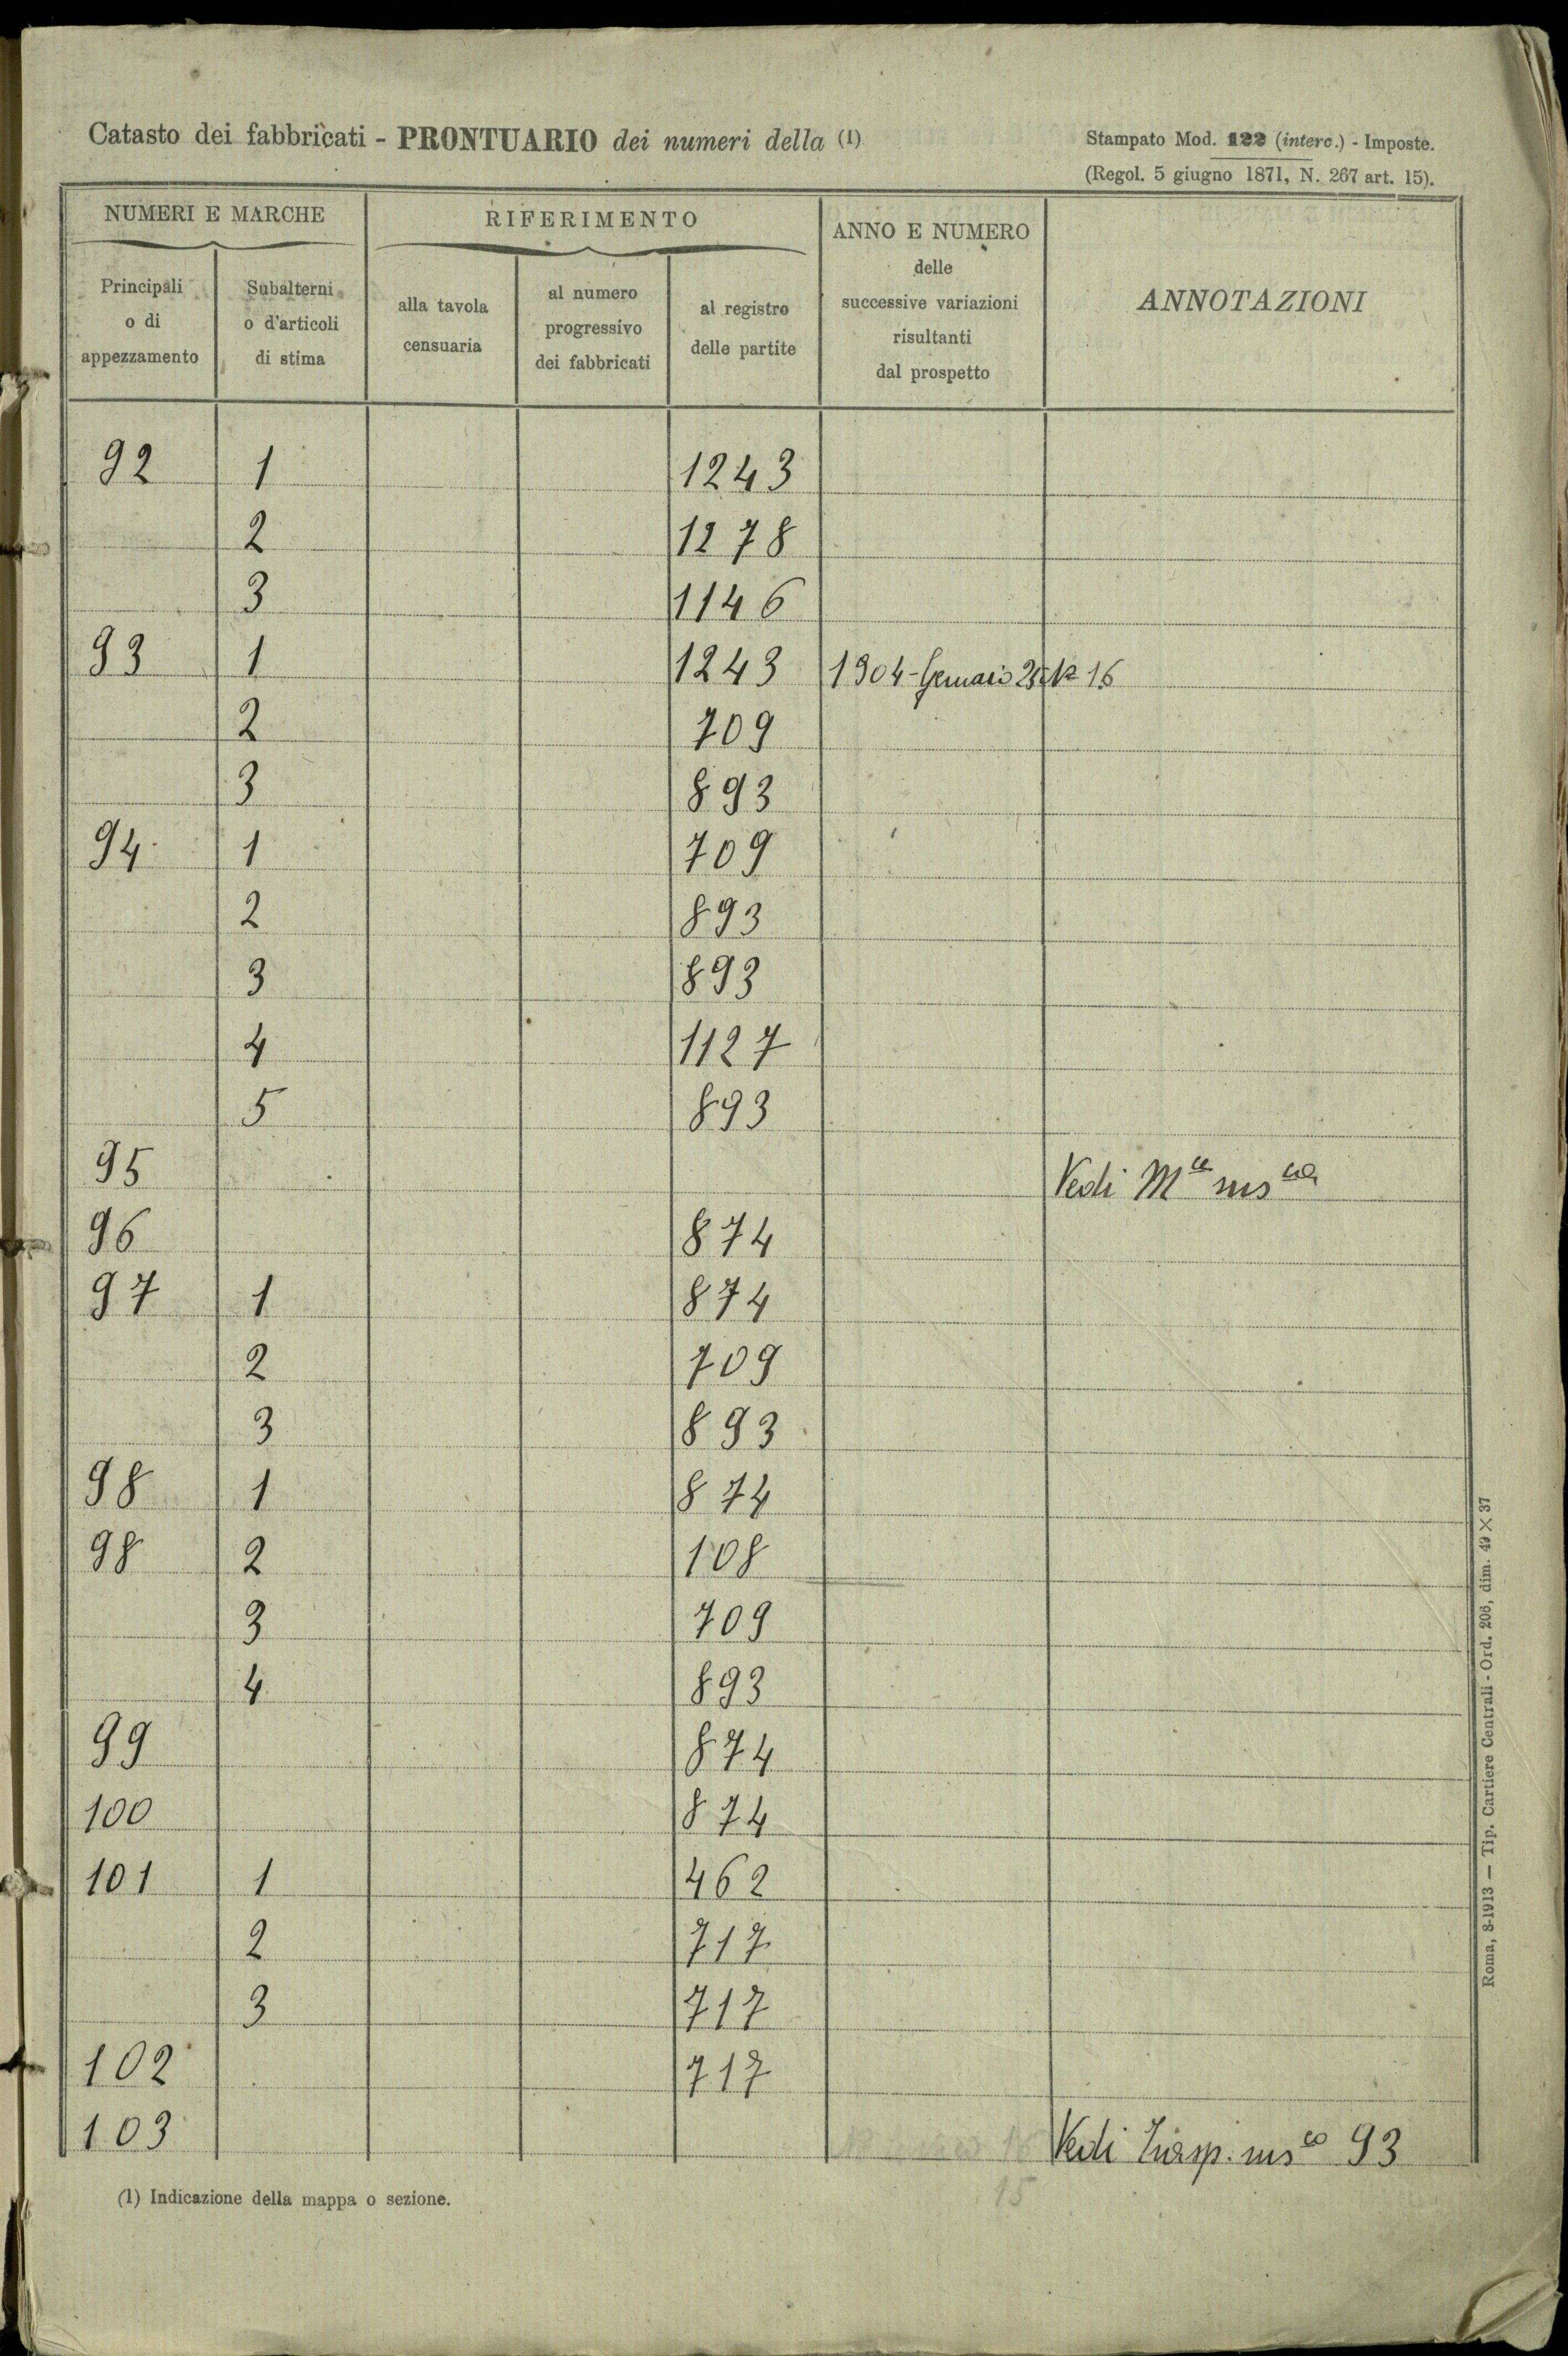 Catasto dei fabbricati - PRONTUARIO dei numeri della (1)
Stampato Mod. 122 (interc.) - Imposte.
(Regol. 5 giugno 1871, N. 267 art. 15).
NUMERI E MARCHE
RIFERIMENTO
ANNO E NUMERO
delle
successive variazioni
risultanti
dal prospetto
ANNOTAZIONI
Principali
o di
appezzamento
Subalterni
o d'articoli
di stima
alla tavola
censuaria
al numero
progressivo
dei fabbricati
al registro
delle partite
92 1 1243
2 1278
3 1146
93 1 1243 1904-Gennaio 25 N° 16
2 709
3 893
94 1 709
2 893
3 893
4 1127
5 893
95 Vedi
96 874
97 1 874
2 709
3 893
98 1 874
98 2 108
3 709
4 893
99 874
100 874
101 1 462
2 717
3 717
102 717
103 Vedi 93
15
(1) Indicazione della mappa o sezione.
Roma, 8-1913 — Tip. Cartiere Centrali - Ord. 206, dim. 49 × 37